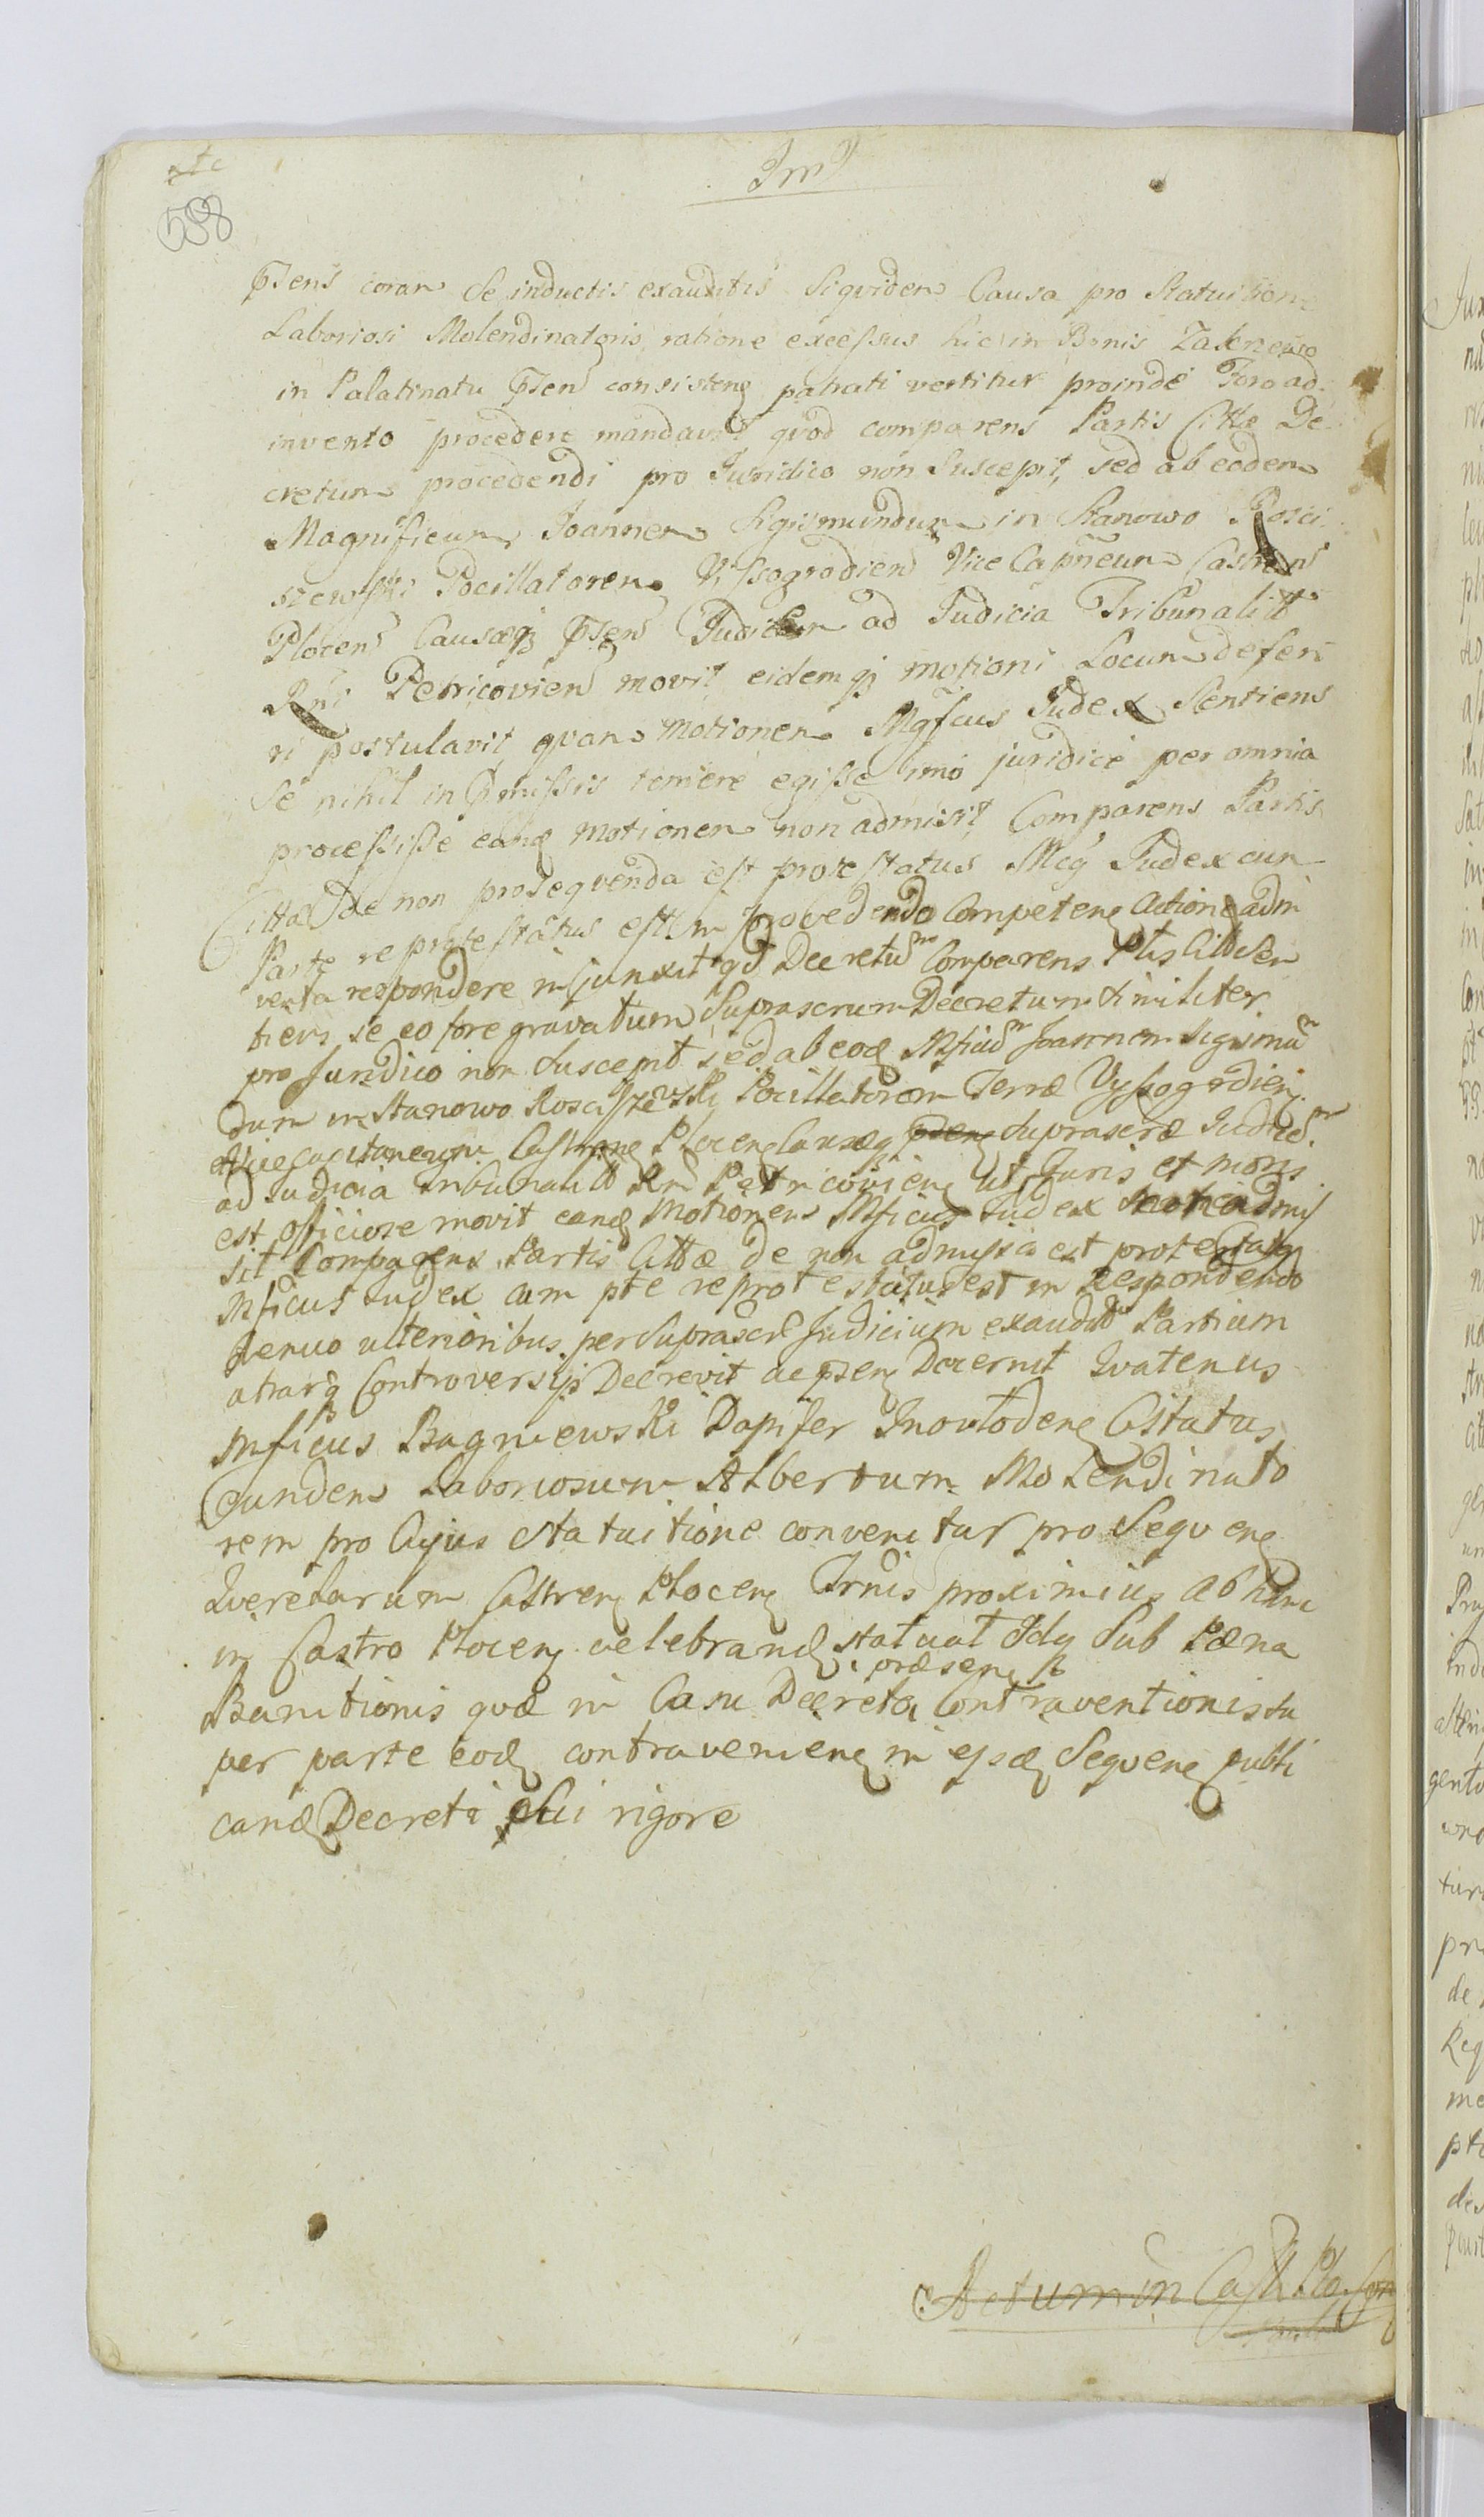 588
Psens coram se inductis exauditis Siqvidem Causa pro Statuitione
Laboriosi Molendinatoris ratione excessus hic in Bonis
in Palatinatu Psen consisten patrati vertitur proinde Foro ad
invento procedere mandavit qvod comparens Partis Cittæ De
cretum procedendi pro Juridico non Suscepit, sed ab eodem
Magnificum Joannem Sigismundum in Stanowo Rosci
szewski Pocillatorem Vissogrodien Vice Capneum Castren
Plocen Causæqz Psen Judicem ad Judicia Tribunalitt
Rni Petricovien movit eidemqz motioni Locum defer
ri postulavit qvam Motionem Mgfcus Judex Sentiens
Se nihil in Pmissis temere egisse imo juridice per omnia
processisse eand Motionem non admisit Comparens Partis
Cittæ de non proseqvenda est protestatus Mcg Judex cum
Parte reprotestatus est in procedendo Competen Actione adin
venta respondere injunxit qd Decretum Comparens Ptis Citt Sen
tiens se eo fore gravatum Suprascrum Decretum similiter
pro Juridico non Suscepit sed ab eod Mficum Joannem Sigismu
dum in Stanowo Rosciszewski Pocillatorem Terræ Vyssogrodien
et Vice Capitaneum Castren Plocen Causæq psen Suprascræ Judice
ad Judicia Tribunalitt Rni Petricovien ut Juris et moris
est officiose movit eand Motionem Mficus Judex non admi
sit Comparens Partis Cittæ de non admissa est protestatus
Mficus Judex cum pte reprotestatus est in Respondendo
denuo ulterioribus per Suprascr Judicium exauditis Partium
atrarq Controversijs Decrevit ac psen Decernit Qvatenus
Mficus Bagniewski Dapifer Inowlodens Citatus
Eundem Laboriosum Albertum Molendinato
rem pro Cujus Statuitione convenitur pro Seqven
Qverelarum Castren Plocen Trnis proximius ab hinc
in Castro Plocen celebrand statuat Idq Sub Pæna
præsen
Banitionis qvæ in Casu Decreti Contraventionis su
per parte eod contravenien in ejsd Seqven publi
cand Decreti psti rigore
Actum in Castr. Plo.